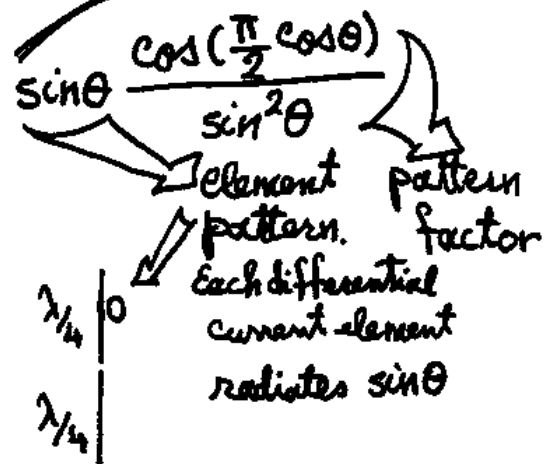 sinθ cos(π/2 cosθ) / sin²θ
element pattern
pattern. factor
λ/4 0 Each differential
current element
λ/4 radiates sinθ